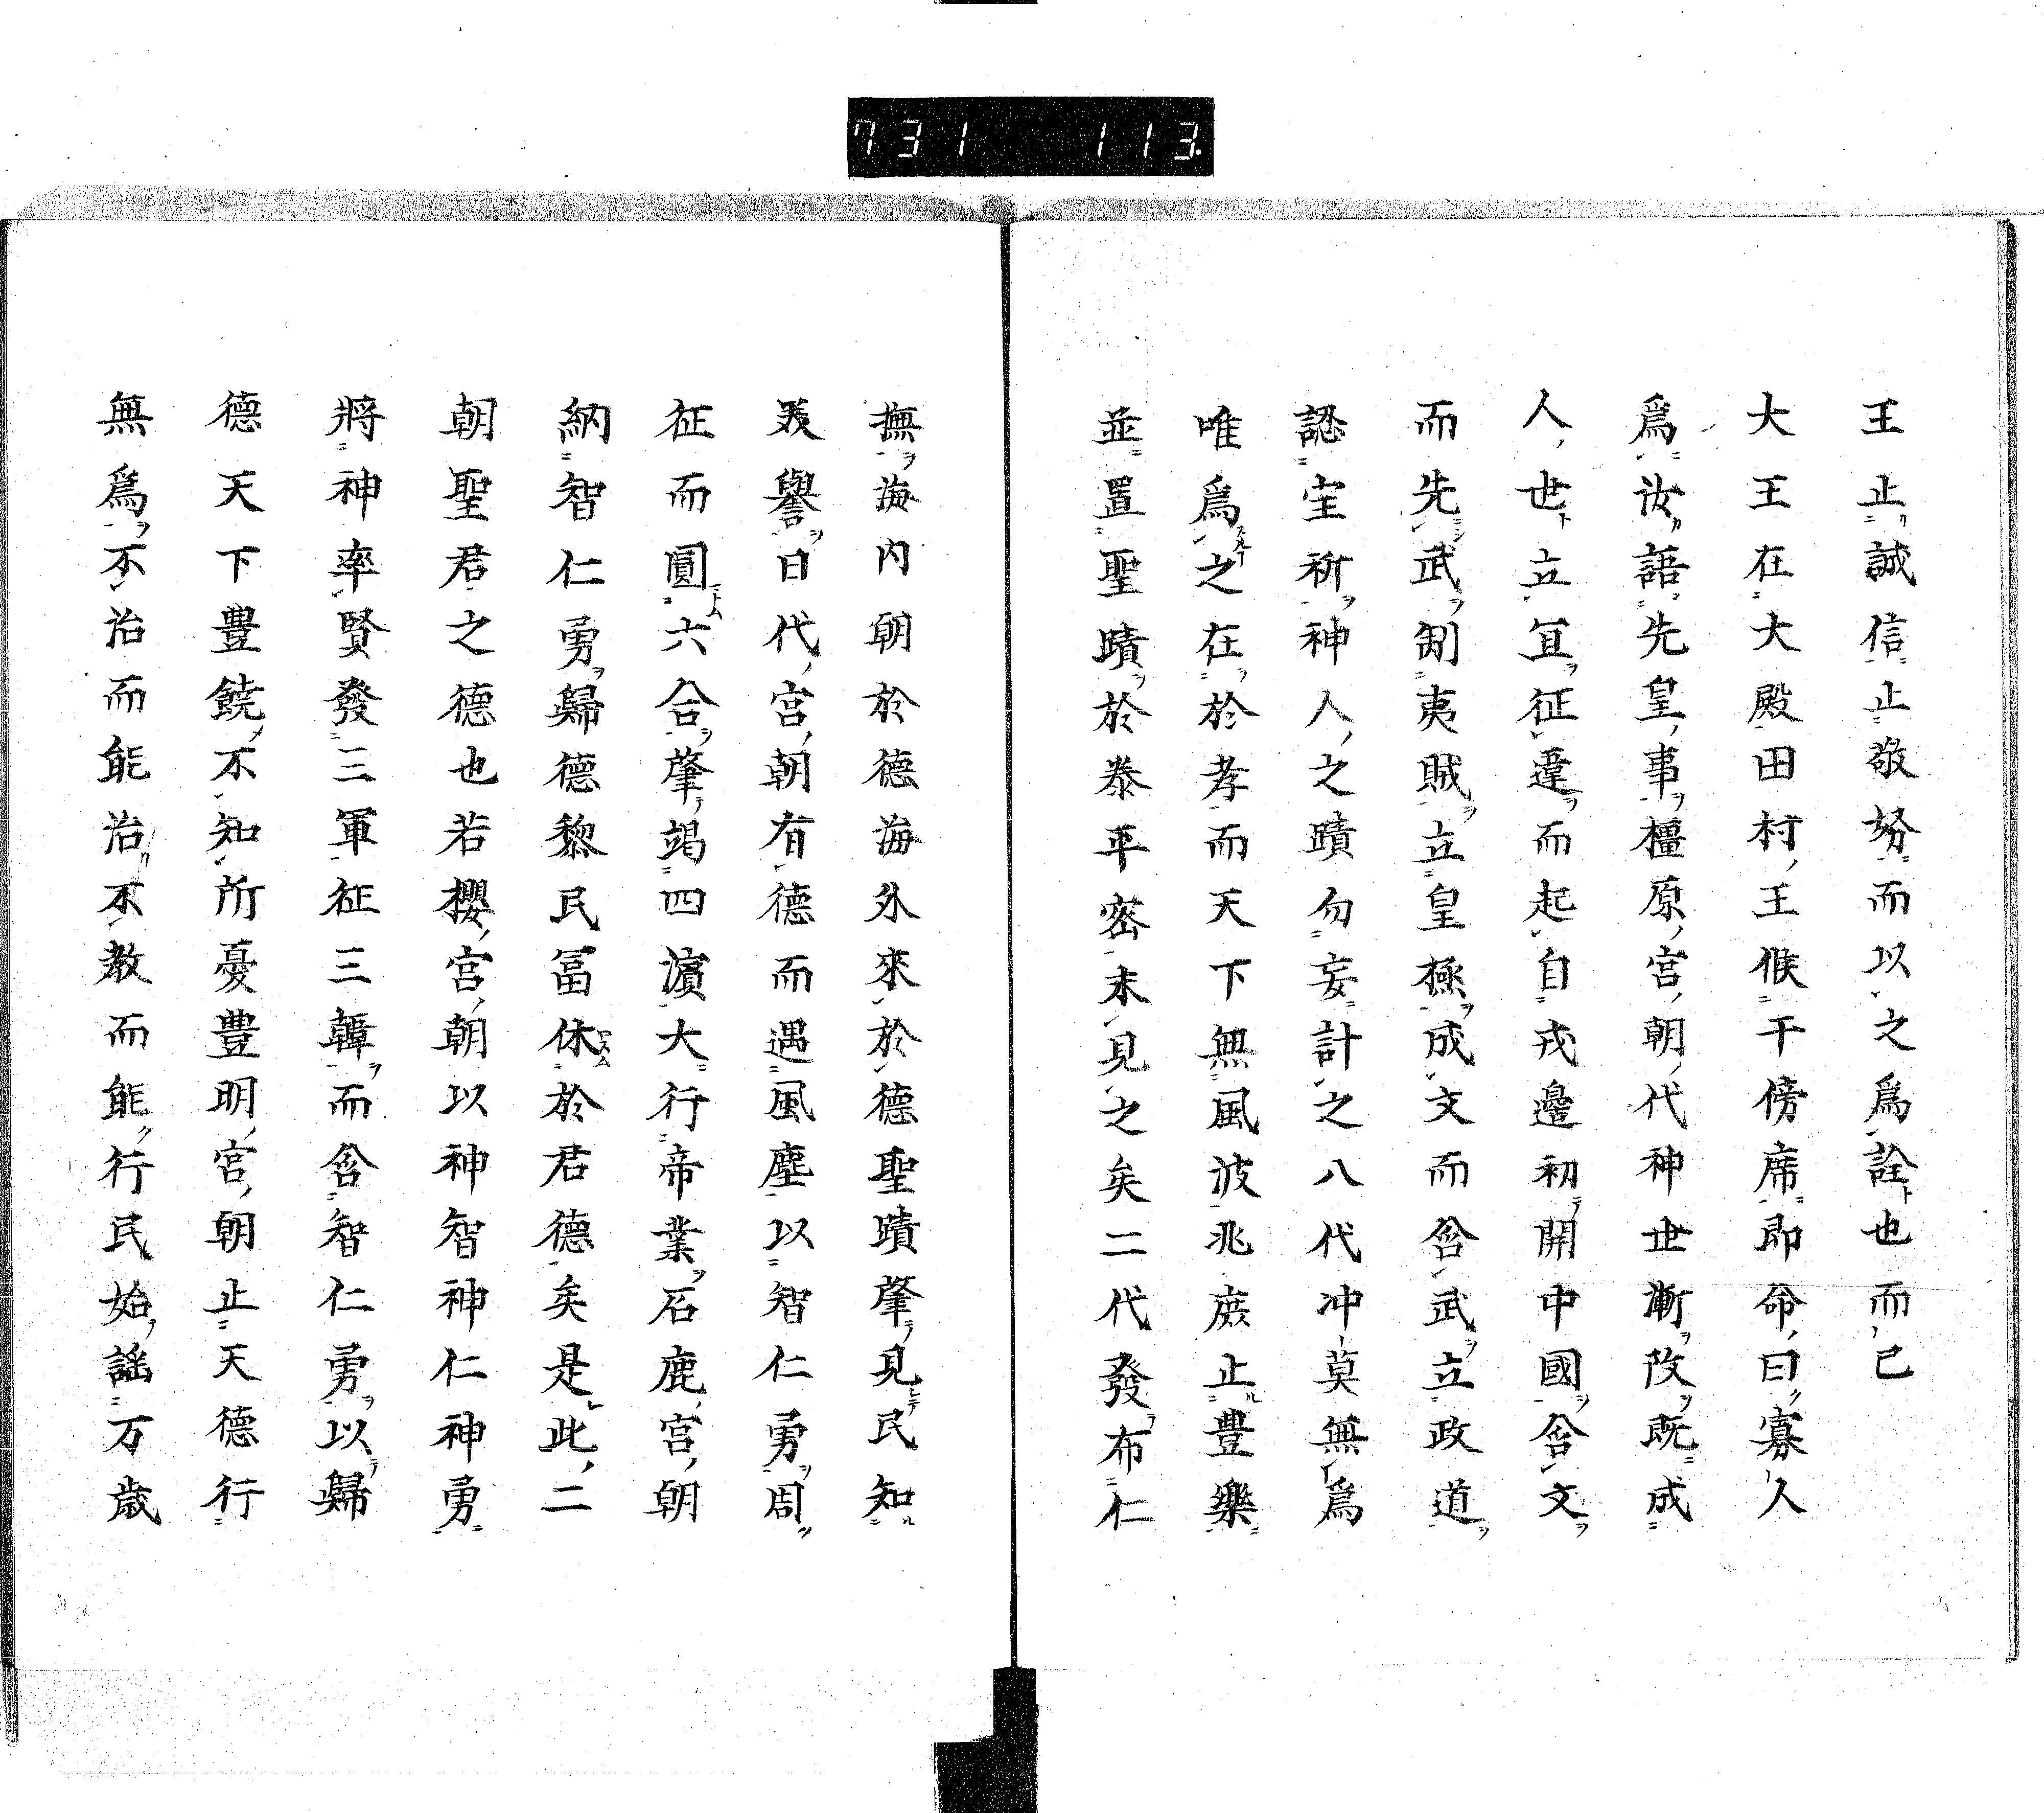 731 113
王止誠信止敬努而以之為詮也而已
大王在大殿田村王候于傍席即命曰寡人
爲汝語先皇事橿原宮朝代神世漸改既成
人世立宜征違而起自戎邊初開中國含文
而先武制夷賊立皇極成文而含武立政道
認宝祈神人之蹟勿妄計之八代冲莫無爲
唯爲之在於孝而天下無風波兆庶止豊樂
並置聖蹟於泰平密未見之矣二代發布仁
撫海内朝於德海外來於德聖蹟肇見民知
美譽日代宮朝有德而遇風塵以智仁勇周
征而圓六合肇竭四濱大行帝業石鹿宮朝
納智仁勇歸德黎民冨休於君德矣是此二
朝聖君之德也若櫻宮朝以神智神仁神勇
將神率賢發三軍征三韓而含智仁勇以歸
德天下豊饒不知所憂豊明宮朝止天德行
無爲不治而能治不教而能行民始謡万歳